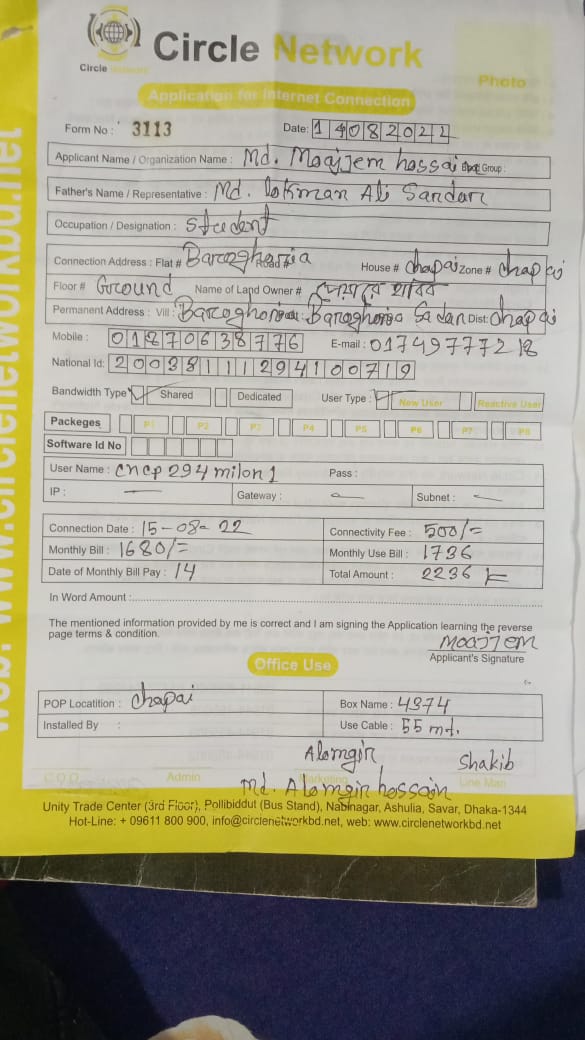 Circle Network
Circle Network
Photo
Application for Internet Connection
Form No : 3113 Date: 14082022
Applicant Name / Organization Name : Md. Moajjem hossai Group :
Father's Name / Representative : Md. Lokman Ali Sardar
Occupation / Designation : Student
Connection Address : Flat # Baroghoria Road # House # Chapai Zone # Chapai
Floor # Ground Name of Land Owner #
Permanent Address : Vill : Baroghoria Baroghoria Sadar Dist: Chapai
Mobile : 01870638776 E-mail : 01749777218
National Id: 20038111294100719
Bandwidth Type ✓ Shared Dedicated User Type : ✓ New User Reactive User
Packeges P1 P2 P3 P4 P5 P6 P7 P8
Software Id No
User Name : cncp294milon1 Pass :
IP : — Gateway : — Subnet : —
Connection Date : 15-08-22 Connectivity Fee : 500/=
Monthly Bill : 1680/= Monthly Use Bill : 1736
Date of Monthly Bill Pay : 14 Total Amount : 2236
In Word Amount :
The mentioned information provided by me is correct and I am signing the Application learning the reverse
page terms & condition.
Moajjem
Applicant's Signature
Office Use
POP Locatition : Chapai Box Name : 4374
Installed By : Use Cable : 55 md.
Alomgir Shakib
C.O.O Admin Marketing Line Man
Md. Alomgir hossain
Unity Trade Center (3rd Floor), Pollibiddut (Bus Stand), Nabinagar, Ashulia, Savar, Dhaka-1344
Hot-Line: + 09611 800 900, info@circlenetworkbd.net, web: www.circlenetworkbd.net
web: www.circlenetworkbd.net